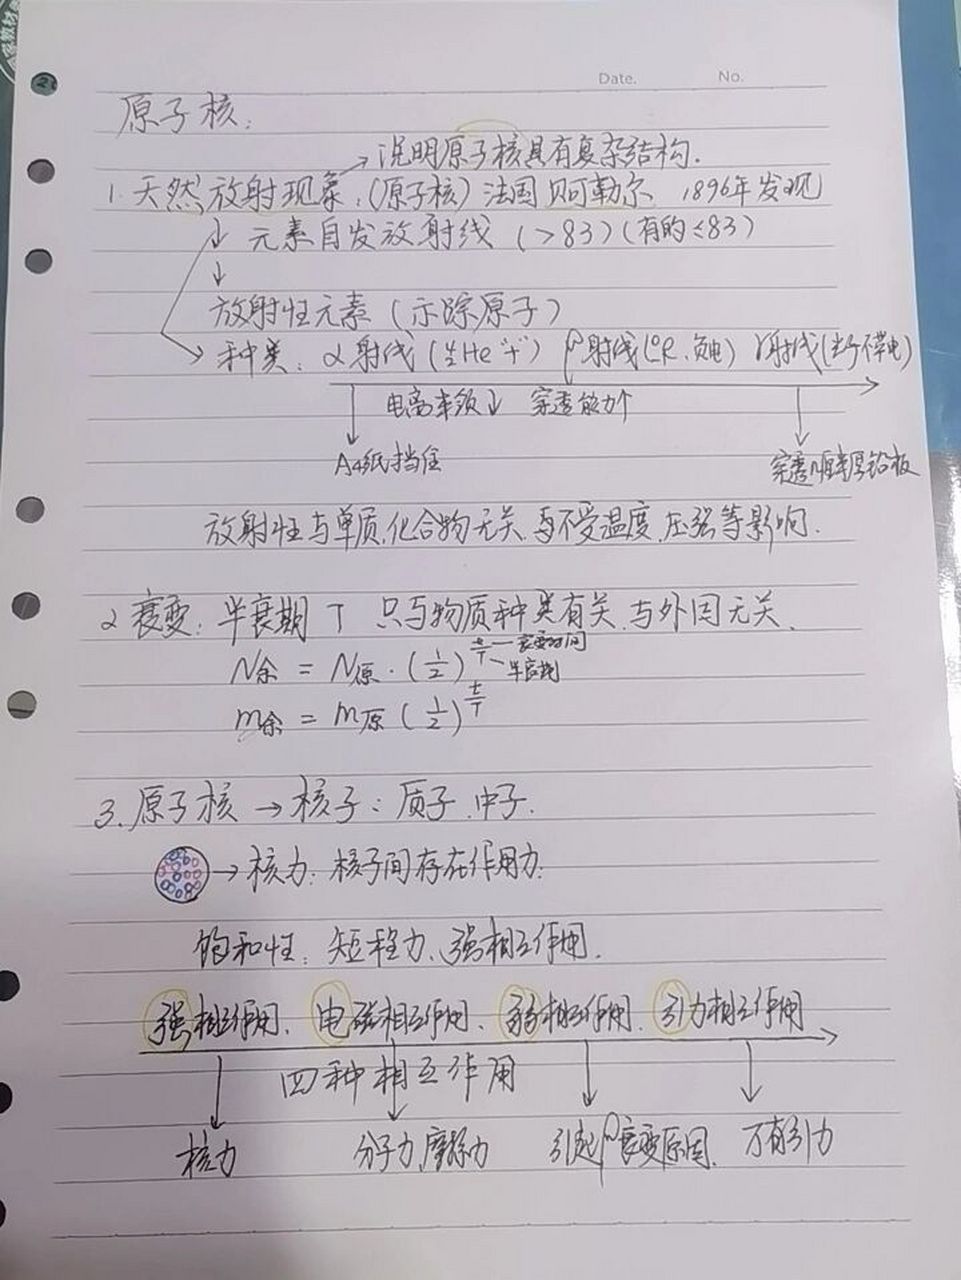 Date. No.
原子核:
→说明原子核具有复杂结构.
1.天然放射现象:(原子核)法国 贝可勒尔 1896年发现
↓ 元素自发放射线 (>83)(有的≤83)
↓
放射性元素 (示踪原子)
→种类: α射线(⁴₂He "+") β射线(, 负电) γ射线(光子不带电)
电离本领↓ 穿透能力↑
A4纸挡住 穿透厚铅板
放射性与单质,化合物无关,再不受温度,压强等影响.
2 衰变: 半衰期 T 只与物质种类有关,与外因无关.
N余 = N原·(1/2)^(t/T) — 衰变时间
- 半衰期
m余 = m原 (1/2)^(t/T)
3.原子核→核子:质子.中子.
→核力:核子间存在作用力.
饱和性、短程力、强相互作用.
强相互作用、电磁相互作用、弱相互作用、引力相互作用
四种相互作用
核力 分子力,摩擦力 引起β衰变原因. 万有引力